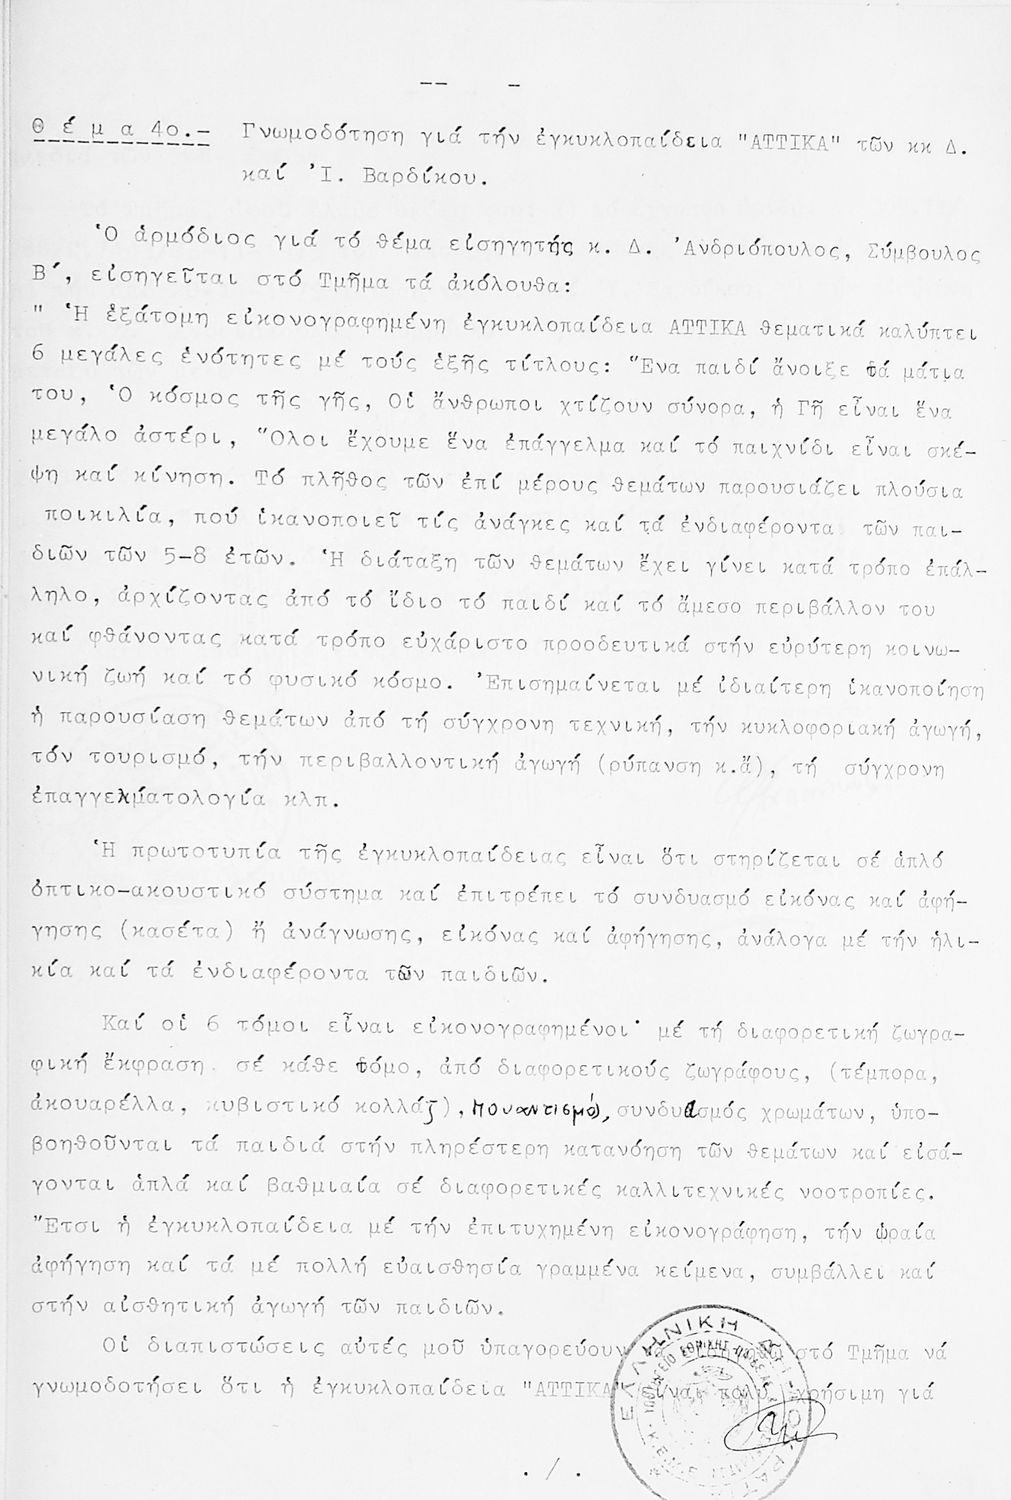 -- -
Θ έ μ α 4ο.- Γνωμοδότηση γιά τήν ἐγκυκλοπαίδεια "ΑΤΤΙΚΑ" τῶν κκ Δ.
καί Ἰ. Βαρδίκου.
Ὁ ἁρμόδιος γιά τό θέμα εἰσηγητής κ. Δ. Ἀνδριόπουλος, Σύμβουλος
Β΄, εἰσηγεῖται στό Τμῆμα τά ἀκόλουθα:
" Ἡ ἑξάτομη εἰκονογραφημένη ἐγκυκλοπαίδεια ΑΤΤΙΚΑ θεματικά καλύπτει
6 μεγάλες ἑνότητες μέ τούς ἑξῆς τίτλους: Ἕνα παιδί ἄνοιξε τά μάτια
του, Ὁ κόσμος τῆς γῆς, Οἱ ἄνθρωποι χτίζουν σύνορα, ἡ Γῆ εἶναι ἕνα
μεγάλο ἀστέρι, Ὅλοι ἔχουμε ἕνα ἐπάγγελμα καί τό παιχνίδι εἶναι σκέ-
ψη καί κίνηση. Τό πλῆθος τῶν ἐπί μέρους θεμάτων παρουσιάζει πλούσια
ποικιλία, πού ἱκανοποιεῖ τίς ἀνάγκες καί τά ἐνδιαφέροντα τῶν παι-
διῶν τῶν 5-8 ἐτῶν. Ἡ διάταξη τῶν θεμάτων ἔχει γίνει κατά τρόπο ἐπάλ-
ληλο, ἀρχίζοντας ἀπό τό ἴδιο τό παιδί καί τό ἄμεσο περιβάλλον του
καί φθάνοντας κατά τρόπο εὐχάριστο προοδευτικά στήν εὐρύτερη κοινω-
νική ζωή καί τό φυσικό κόσμο. Ἐπισημαίνεται μέ ἰδιαίτερη ἱκανοποίηση
ἡ παρουσίαση θεμάτων ἀπό τή σύγχρονη τεχνική, τήν κυκλοφοριακή ἀγωγή,
τόν τουρισμό, τήν περιβαλλοντική ἀγωγή (ρύπανση κ.ἄ), τή σύγχρονη
ἐπαγγελματολογία κλπ.
Ἡ πρωτοτυπία τῆς ἐγκυκλοπαίδειας εἶναι ὅτι στηρίζεται σέ ἁπλό
ὀπτικο-ακουστικό σύστημα καί ἐπιτρέπει τό συνδυασμό εἰκόνας καί ἀφή-
γησης (κασέτα) ἤ ἀνάγνωσης, εἰκόνας καί ἀφήγησης, ἀνάλογα μέ τήν ἡλι-
κία καί τά ἐνδιαφέροντα τῶν παιδιῶν.
Καί οἱ 6 τόμοι εἶναι εἰκονογραφημένοι· μέ τή διαφορετική ζωγρα-
φική ἔκφραση σέ κάθε τόμο, ἀπό διαφορετικούς ζωγράφους, (τέμπορα,
ἀκουαρέλλα, κυβιστικό κολλάζ), πουαντισμό, συνδυασμός χρωμάτων, ὑπο-
βοηθοῦνται τά παιδιά στήν πληρέστερη κατανόηση τῶν θεμάτων καί εἰσά-
γονται ἁπλά καί βαθμιαία σέ διαφορετικές καλλιτεχνικές νοοτροπίες.
Ἔτσι ἡ ἐγκυκλοπαίδεια μέ τήν ἐπιτυχημένη εἰκονογράφηση, τήν ὡραία
ἀφήγηση καί τά μέ πολλή εὐαισθησία γραμμένα κείμενα, συμβάλλει καί
στήν αἰσθητική ἀγωγή τῶν παιδιῶν.
Οἱ διαπιστώσεις αὐτές μοῦ ὑπαγορεύουν στό Τμῆμα νά
γνωμοδοτήσει ὅτι ἡ ἐγκυκλοπαίδεια "ΑΤΤΙΚΑ" εἶναι πολύ χρήσιμη γιά
ΕΛΛΗΝΙΚΗ
./.